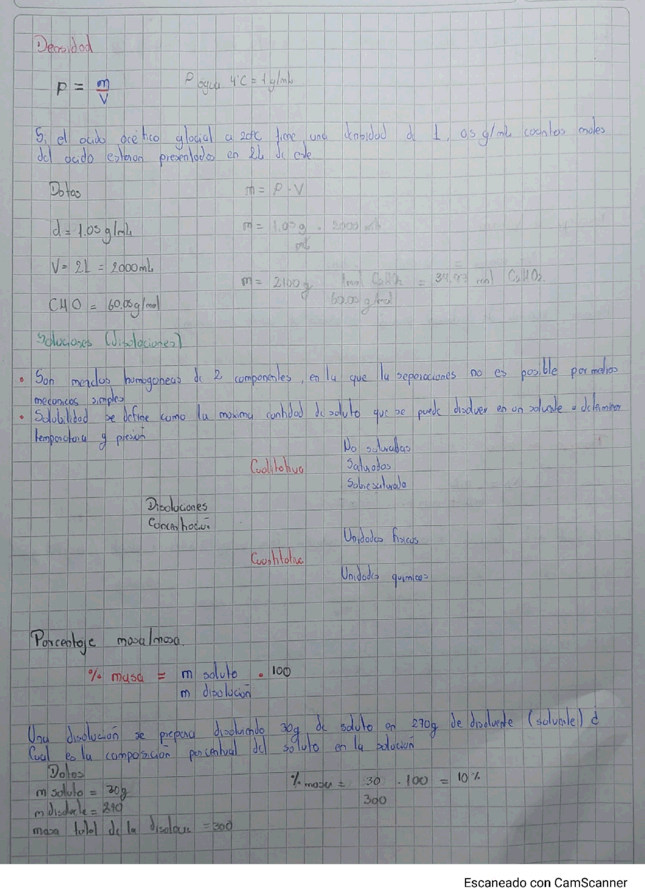 Densidad
P = m/V
P agua 4°C = 1g/mL
Si el acido acético glacial a 20°C tiene una densidad de 1,05g/mL cuantos moles
del acido estaran presentados en 2L de este
Datos
m = P · V
d = 1.05g/mL
m = 1.05g · 2000 mL
mL
V = 2L = 2000mL
m = 2100g 1mol = mol C2H4O2
60.05g/mol
CHO = 60,05g/mol
Soluciones (Disoluciones)
• Son mezclas homogeneas de 2 componentes, en la que la separaciones no es posible por medios
mecanicos simples
• Solubilidad se define como la maxima cantidad de soluto que se puede disolver en un solvente a determinar
temperatura y presion
No saturadas
Cualitativa
Saturadas
Sobresaturado
Disoluciones
Concentración
Unidades fisicas
Cuantitativa
Unidades quimicas
Porcentaje masa/masa.
% masa = m soluto · 100
m disolución
Una disolución se prepara disolviendo 30g de soluto en 270g de disolvente (solvente) ¿
Cual es la composición porcentual del soluto en la solución
Datos
% masa = 30 · 100 = 10%
300
m soluto = 30g
m = 270
masa total de la = 300
Escaneado con CamScanner